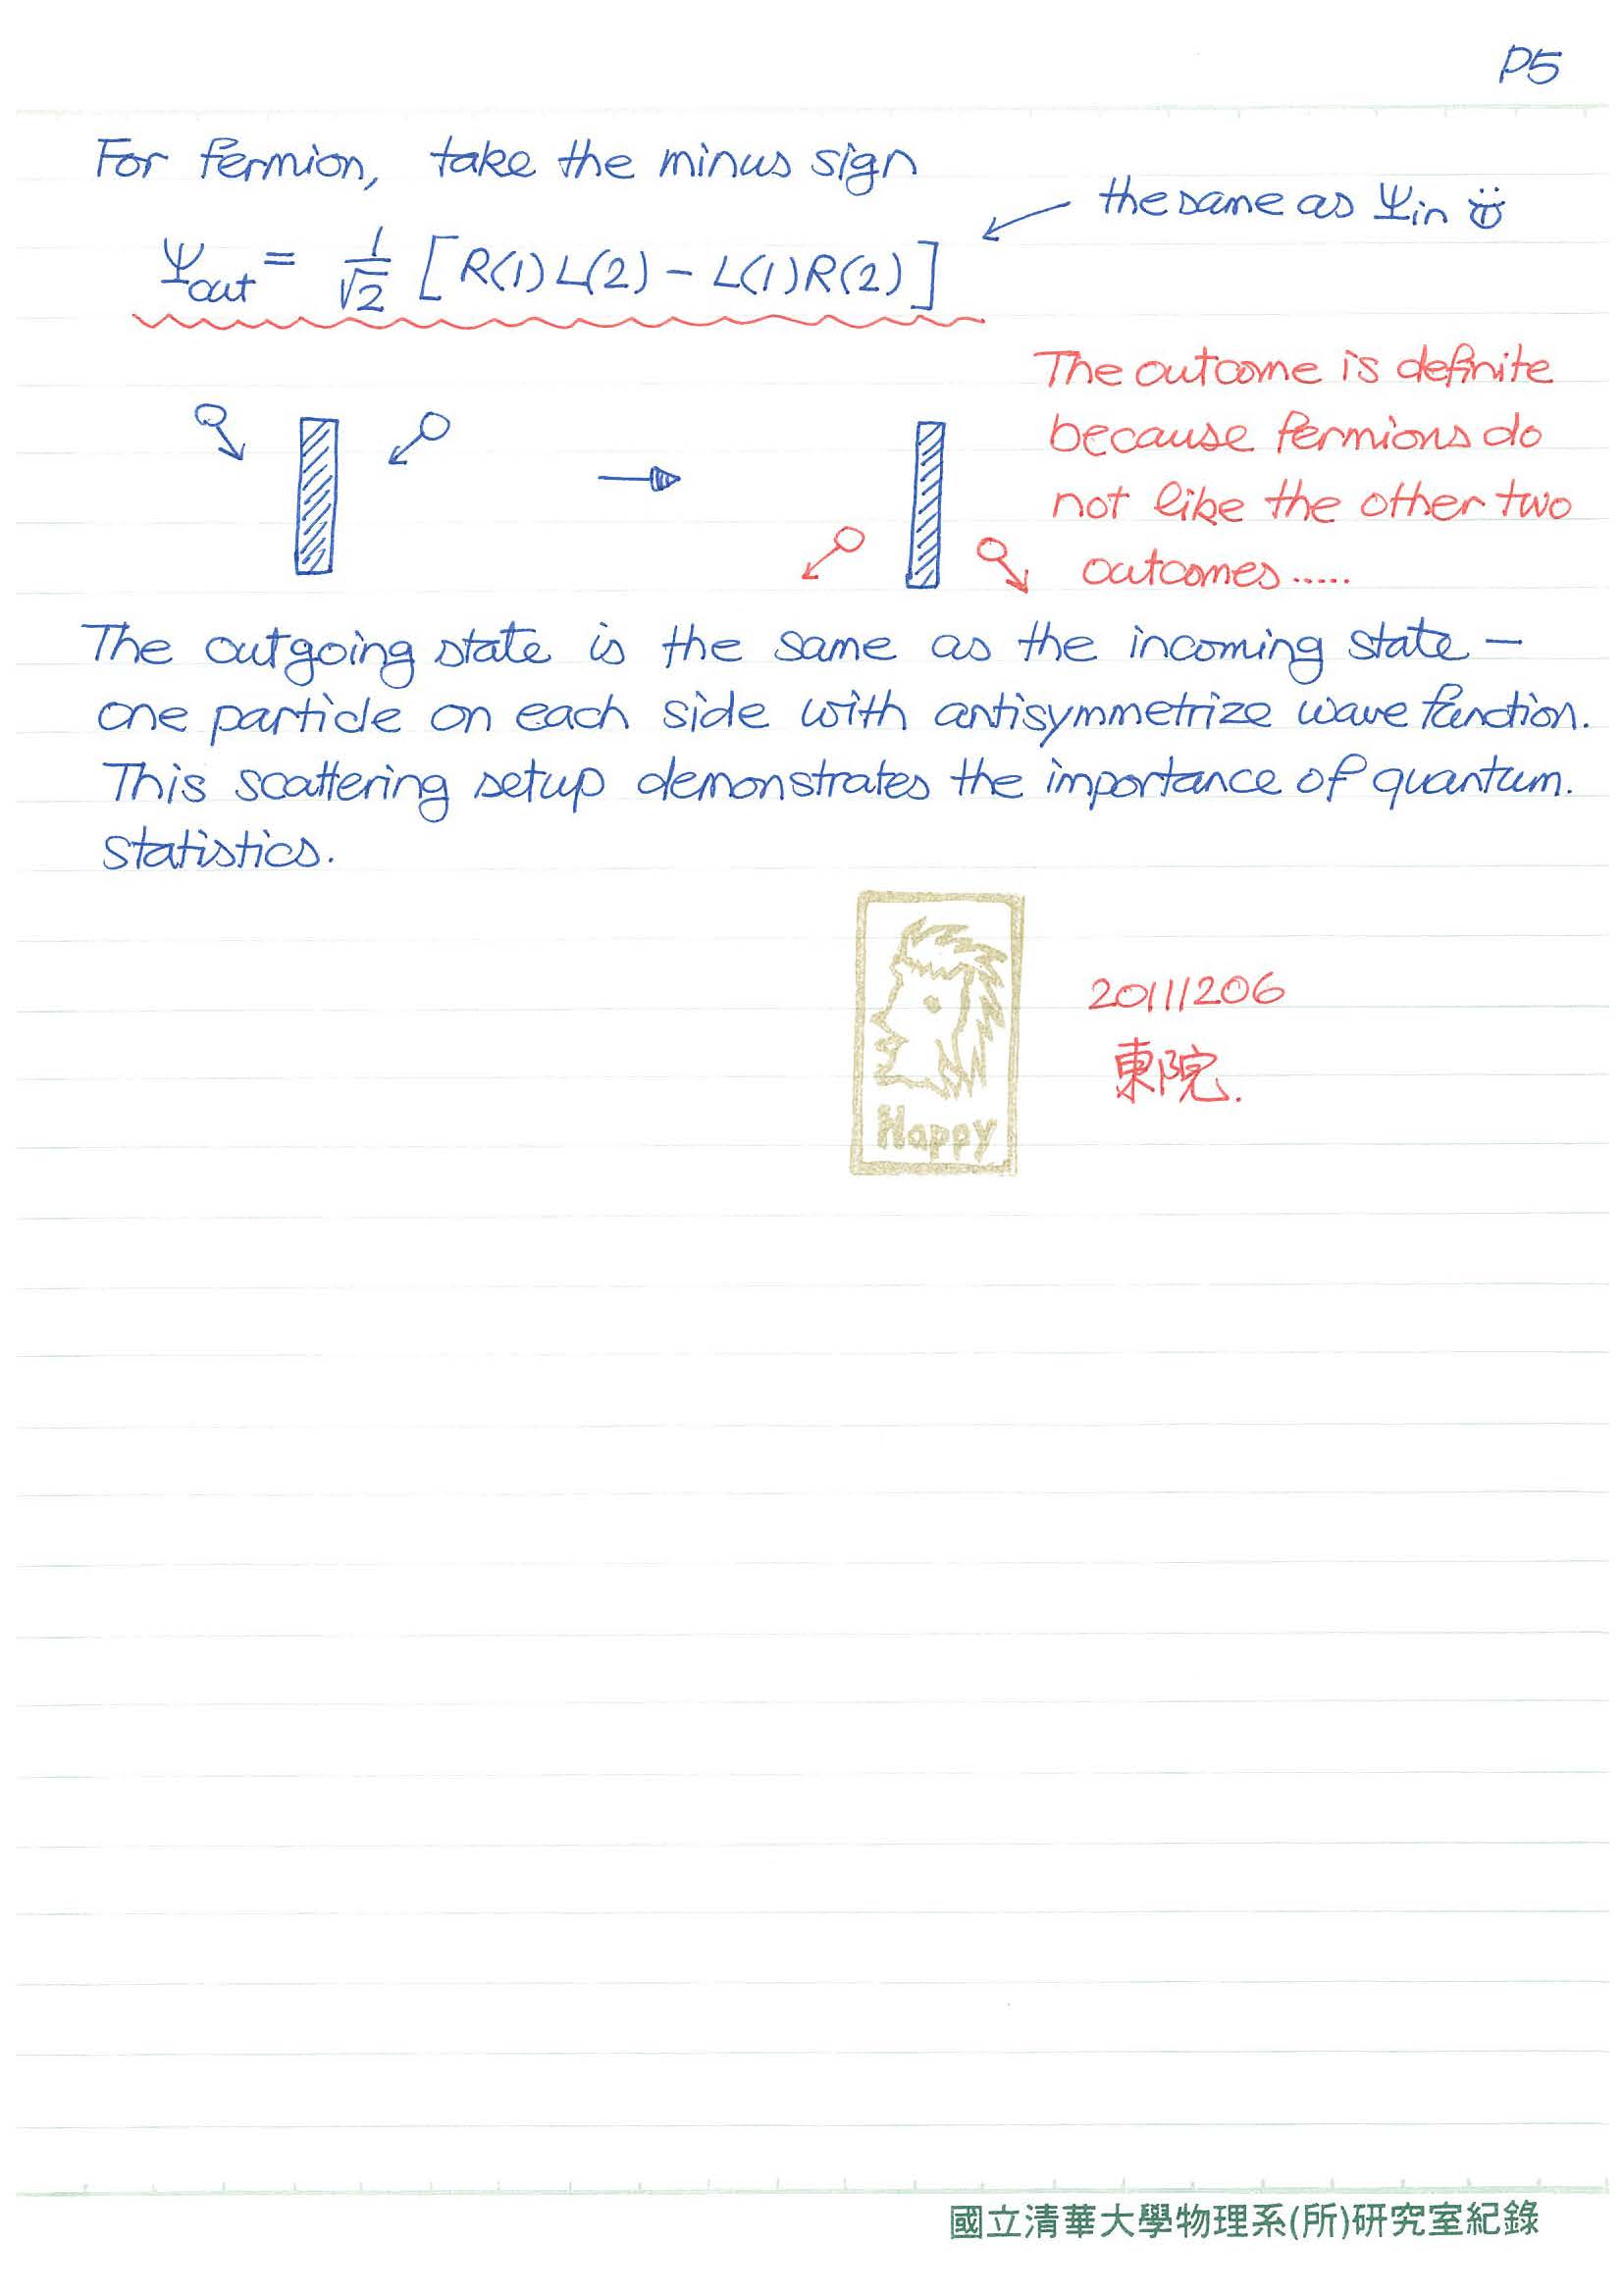 P5
For fermion, take the minus sign
the same as Ψin
Ψout = 1/√2 [R(1)L(2) - L(1)R(2)]
The outcome is definite
because fermions do
not like the other two
outcomes .....
The outgoing state is the same as the incoming state —
one particle on each side with antisymmetrize wave function.
This scattering setup demonstrates the importance of quantum.
statistics.
Happy
20111206
東院.
國立清華大學物理系(所)研究室紀錄